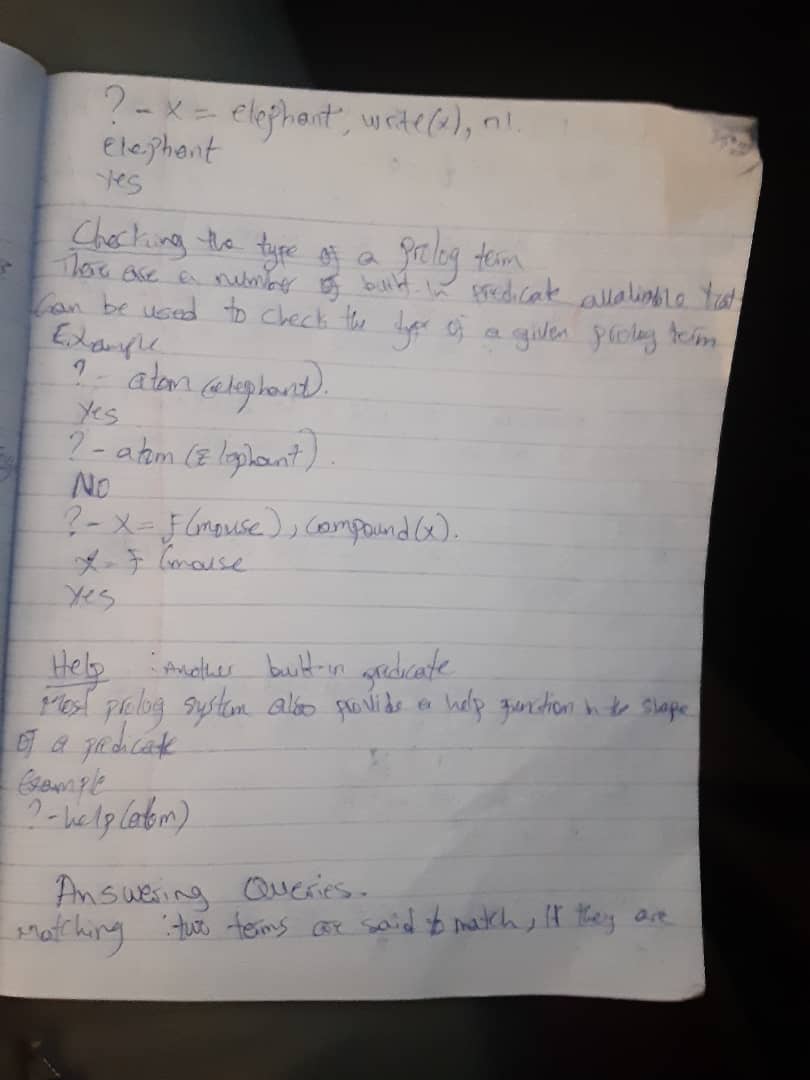 ? - X = elephant, write(x), nl.
elephant
yes
Checking the type of a prolog term
There are a number of built-in predicate available that
Can be used to check the type of a given prolog term
Example
? - atom (elephant).
Yes
? - atom (Elephant).
NO
? - X = F(mouse), compound(x).
X = F (mouse
Yes
Help : Another built-in predicate
Most prolog system also provide a help function in the shape
of a predicate
Example
? - help (atom)
Answering Queries.
Matching : two terms are said to match, if they are